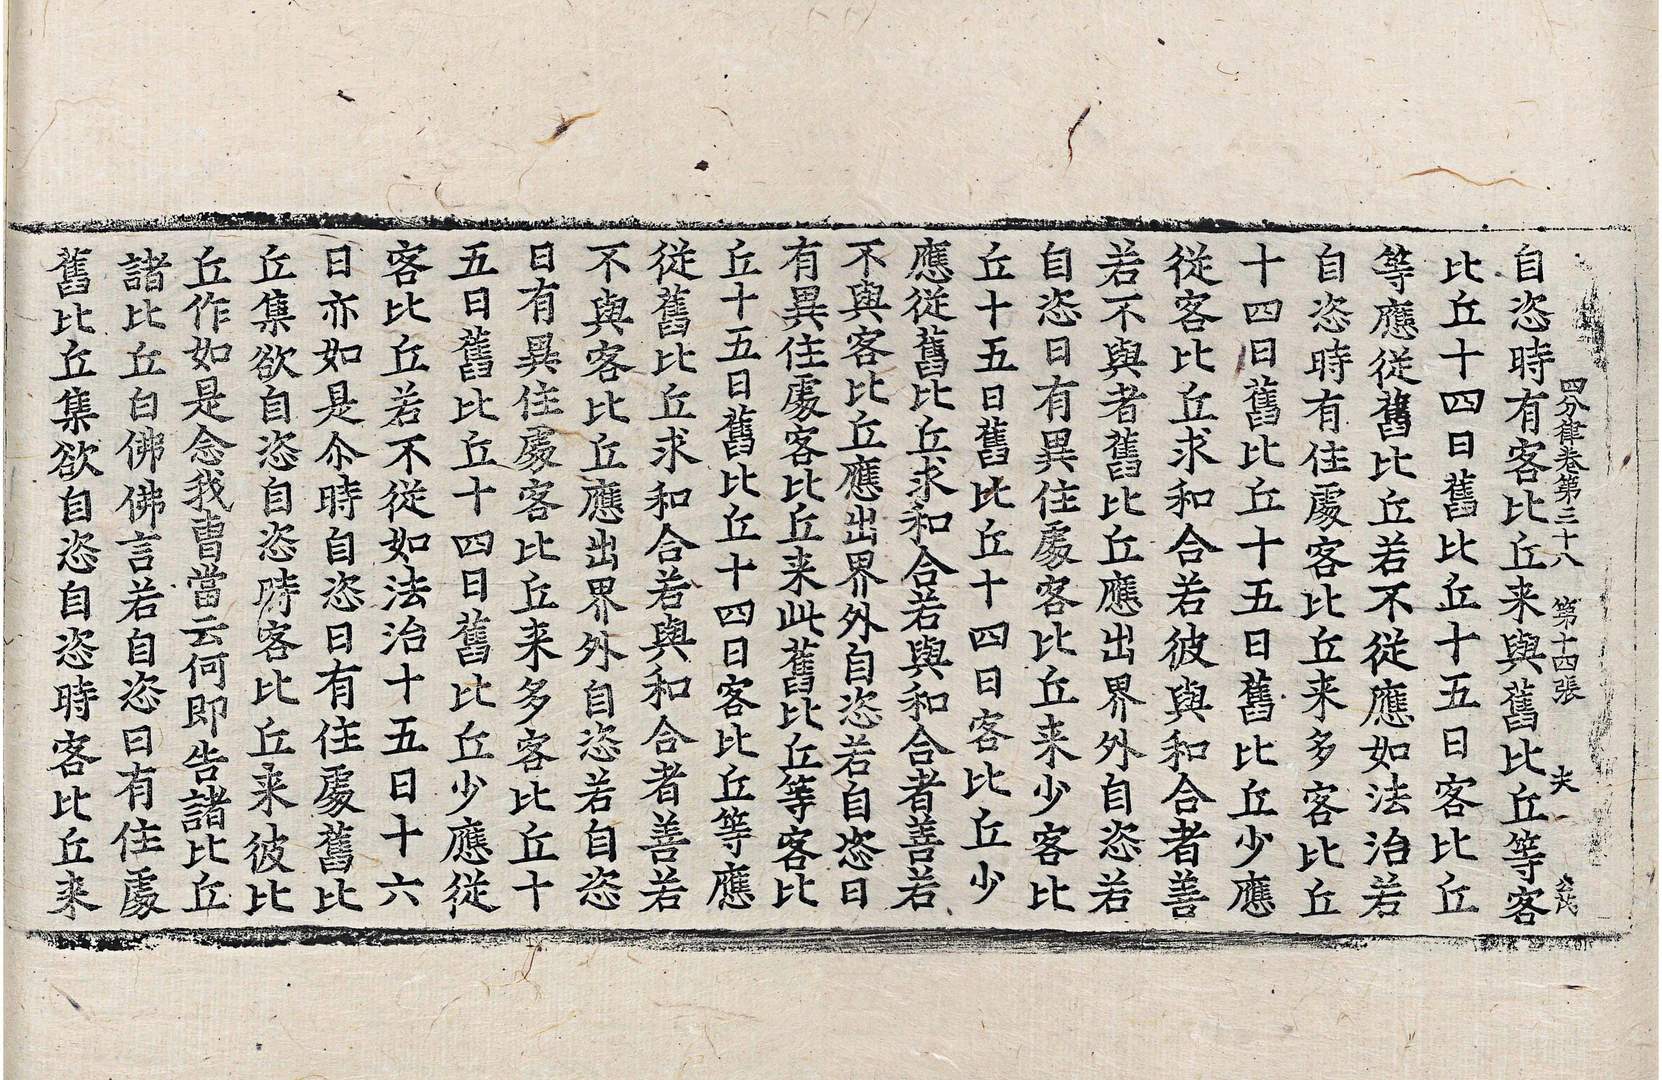 四分律卷第三十八 第十四張 夾
自恣時有客比丘来與舊比丘等客
比丘十四日舊比丘十五日客比丘
等應從舊比丘若不從應如法治若
自恣時有住處客比丘来多客比丘
十四日舊比丘十五日舊比丘少應
從客比丘求和合若彼與和合者善
若不與者舊比丘應出界外自恣若
自恣日有異住處客比丘来少客比
丘十五日舊比丘十四日客比丘少
應從舊比丘求和合若與和合者善若
不與客比丘應出界外自恣若自恣日
有異住處客比丘来此舊比丘等客比
丘十五日舊比丘十四日客比丘等應
從舊比丘求和合若與和合者善若
不與客比丘應出界外自恣若自恣
日有異住處客比丘来多客比丘十
五日舊比丘十四日舊比丘少應從
客比丘若不從如法治十五日十六
日亦如是尒時自恣日有住處舊比
丘集欲自恣自恣時客比丘来彼比
丘作如是念我曹當云何即告諸比丘
諸比丘白佛佛言若自恣日有住處
舊比丘集欲自恣自恣時客比丘来